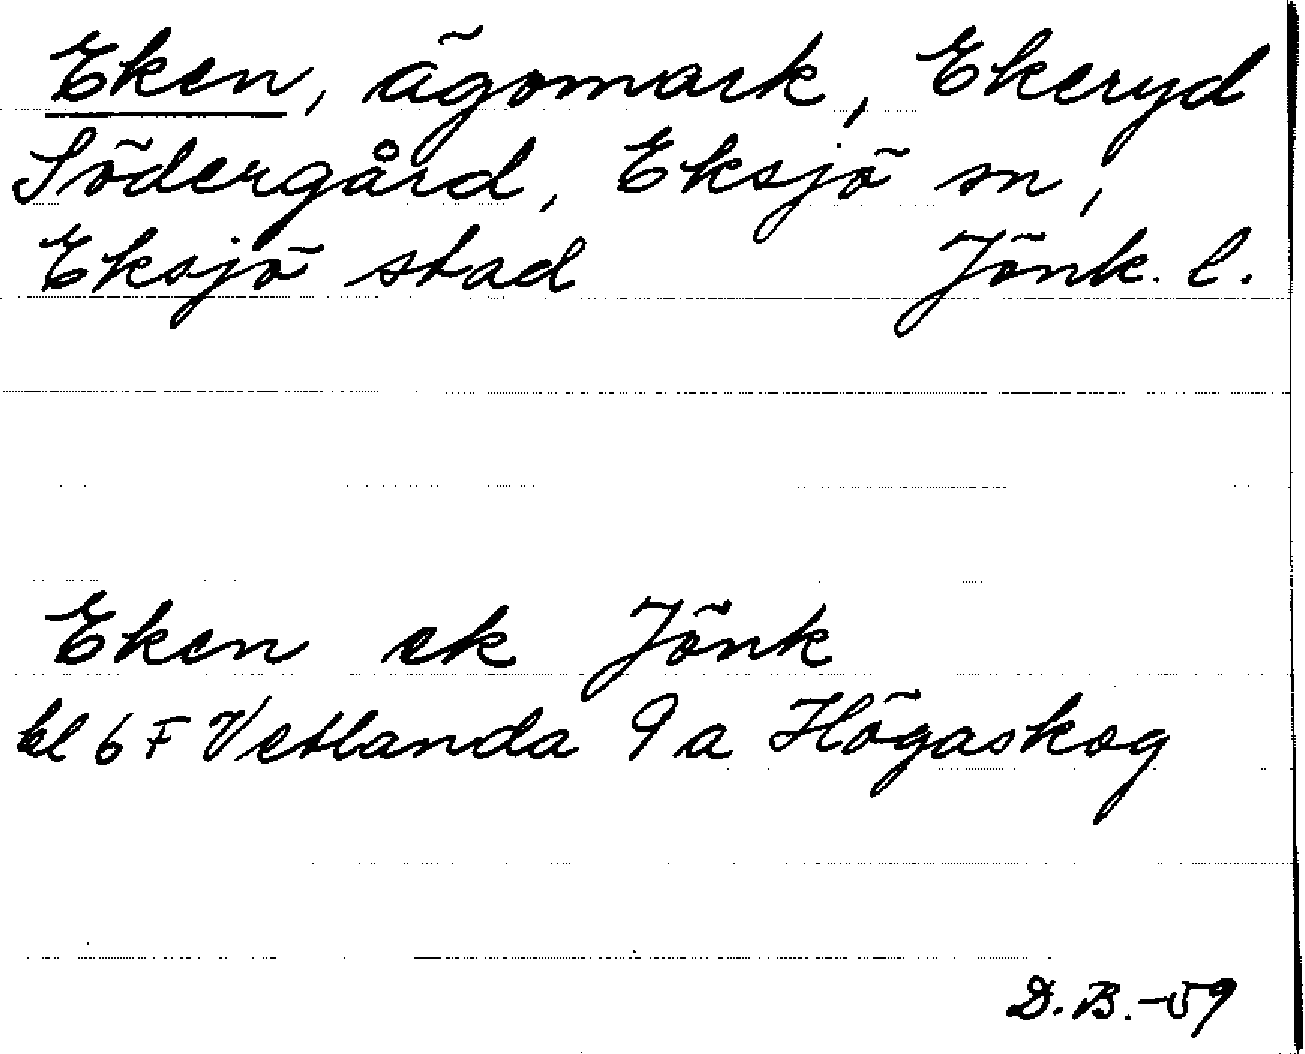 Eken, ägomark, Ekeryd
Södergård, Eksjö sn,
Eksjö stad Jönk. l.
Eken ek Jönk
bl 6 F Vetlanda 9 a Högaskog
D.B.-59